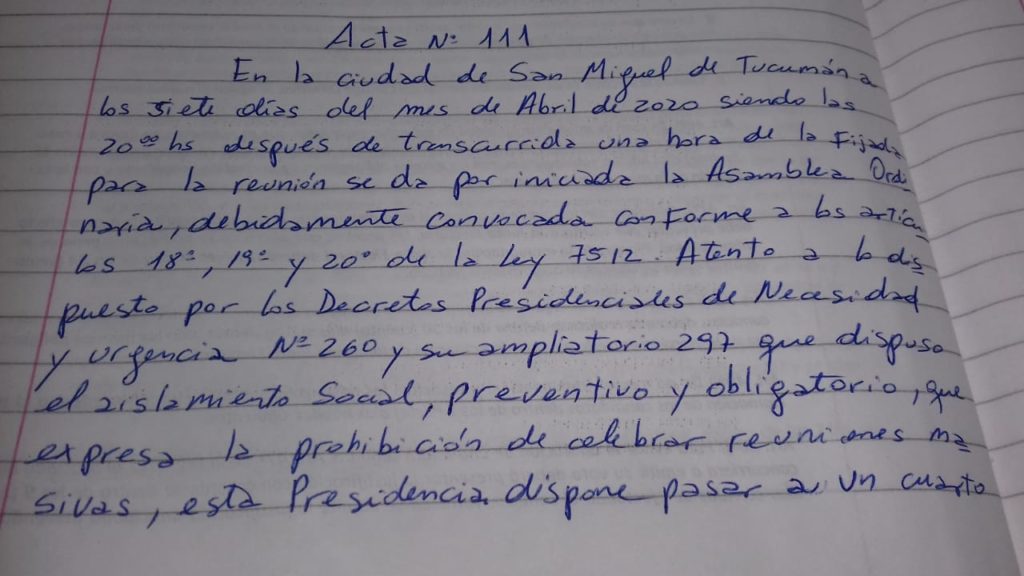 Acta Nº 111
En la ciudad de San Miguel de Tucumán a
los siete días del mes de Abril de 2020 siendo las
20⁰⁰ hs después de transcurrida una hora de la Fijada
para la reunión se da por iniciada la Asamblea Ordi
naria, debidamente convocada conforme a los artícu
los 18º, 19º y 20º de la Ley 7512. Atento a lo dis
puesto por los Decretos Presidenciales de Necesidad
y urgencia Nº 260 y su ampliatorio 297 que dispuso
el aislamiento Social, preventivo y obligatorio, que
expresa la prohibición de celebrar reuniones ma
sivas, esta Presidencia dispone pasar a un cuarto